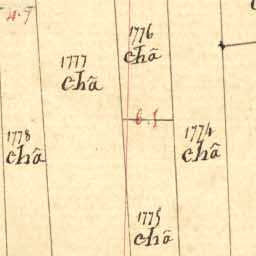 4.7
1776
châ
1777
châ
6.5
1774
châ
1778
châ
1775
châ